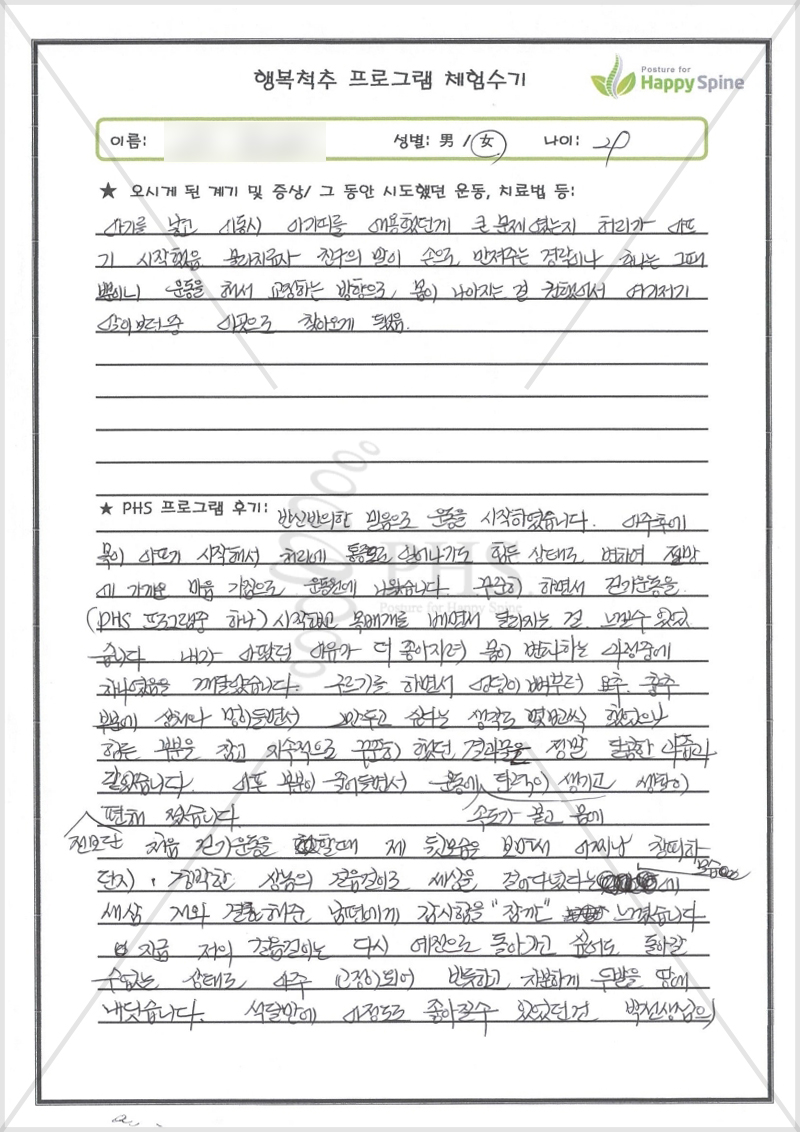 행복척추 프로그램 체험수기
Posture for
Happy Spine
이름: 성별: 男 / 女 나이: 29
★ 오시게 된 계기 및 증상/ 그 동안 시도했던 운동, 치료법 등:
아기를 낳고 이동시 아기띠를 애용했던게 큰 문제였는지 허리가 아프
기 시작했음 물리치료사 친구의 말이 손으로 만져주는 경락이나 하나는 그때
뿐이니 운동을 해서 교정하는 방향으로, 몸이 나아지는 걸 권했어서 여기저기
알아보던중 이곳으로 찾아오게 됐음.
★ PHS 프로그램 후기: 반신반의한 믿음으로 운동을 시작하였습니다. 아주후에
목이 아프기 시작해서 허리에 통증으로 일어나기도 힘든 상태로 변하여 절망
에 가까운 마음 가짐으로 운동원에 나왔습니다. 꾸준히 하면서 걷기운동을
(PHS 프로그램중 하나) 시작했고 목베개를 베면서 달라지는 걸 느낄수 있었
습니다 내가 아팠던 이유가 더 좋아지려 몸이 변화하는 과정중에
하나였음을 깨달았습니다. 구르기를 하면서 엉덩이뼈부터 요추. 흉추
부분에 상처와 멍이들면서 그만두고 싶다는 생각도 몇번씩 했었으나
힘든 부분을 참고 지속적으로 꾸준히 했던 결과물은 정말 달콤한 사탕과
같았습니다. 아픈 부분이 줄어들면서 운동에 탄력이 생기고 생활이
편해 졌습니다 속도가 붙고 몸에
전보단
처음 걷기운동을 할때 제 뒷모습을 보면서 어찌나 창피하
던지, 험악한 상놈의 걸음걸이로 세상을 걸어다녔다는 모습에
세삼 저와 결혼해준 남편에게 감사함을 "잠깐" 느꼈습니다
지금 저의 걸음걸이는 다시 예전으로 돌아가고 싶어도 돌아갈
수없는 상태로 아주 교정이되어 반듯하고, 차분하게 두발을 땅에
내딛습니다. 석달만에 이정도로 좋아질수 있었던건 박선생님의
PHS
Posture for Happy Spine